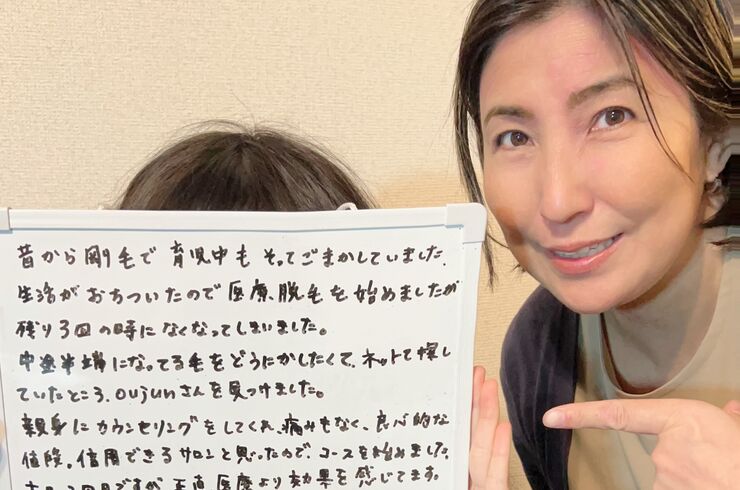 昔から剛毛で育児中もそってごまかしていました。
生活がおちついたので医療脱毛を始めましたが
残り3回の時になくなってしまいました。
中途半端になってる毛をどうにかしたくて、ネットで探し
ていたところ、oujunさんを見つけました。
親身にカウンセリングをしてくれ、痛みもなく、良心的な
値段。信用できるサロンと思ったので、コースを始めました。
2回目ですが正直医療より効果を感じてます。